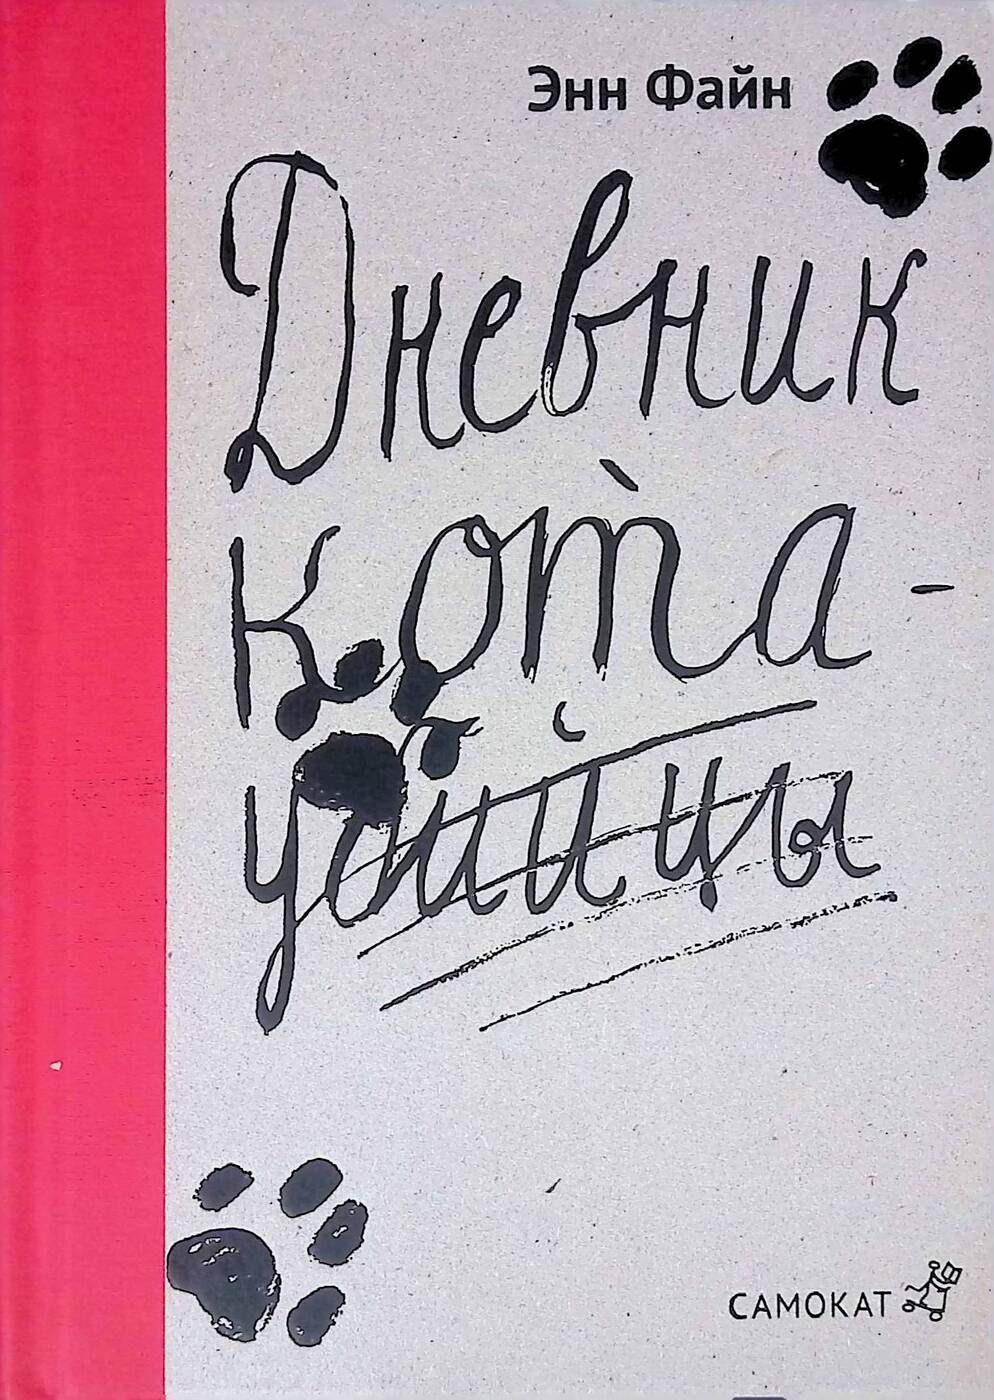 Энн Файн
Дневник
кота-
убийцы
САМОКАТ